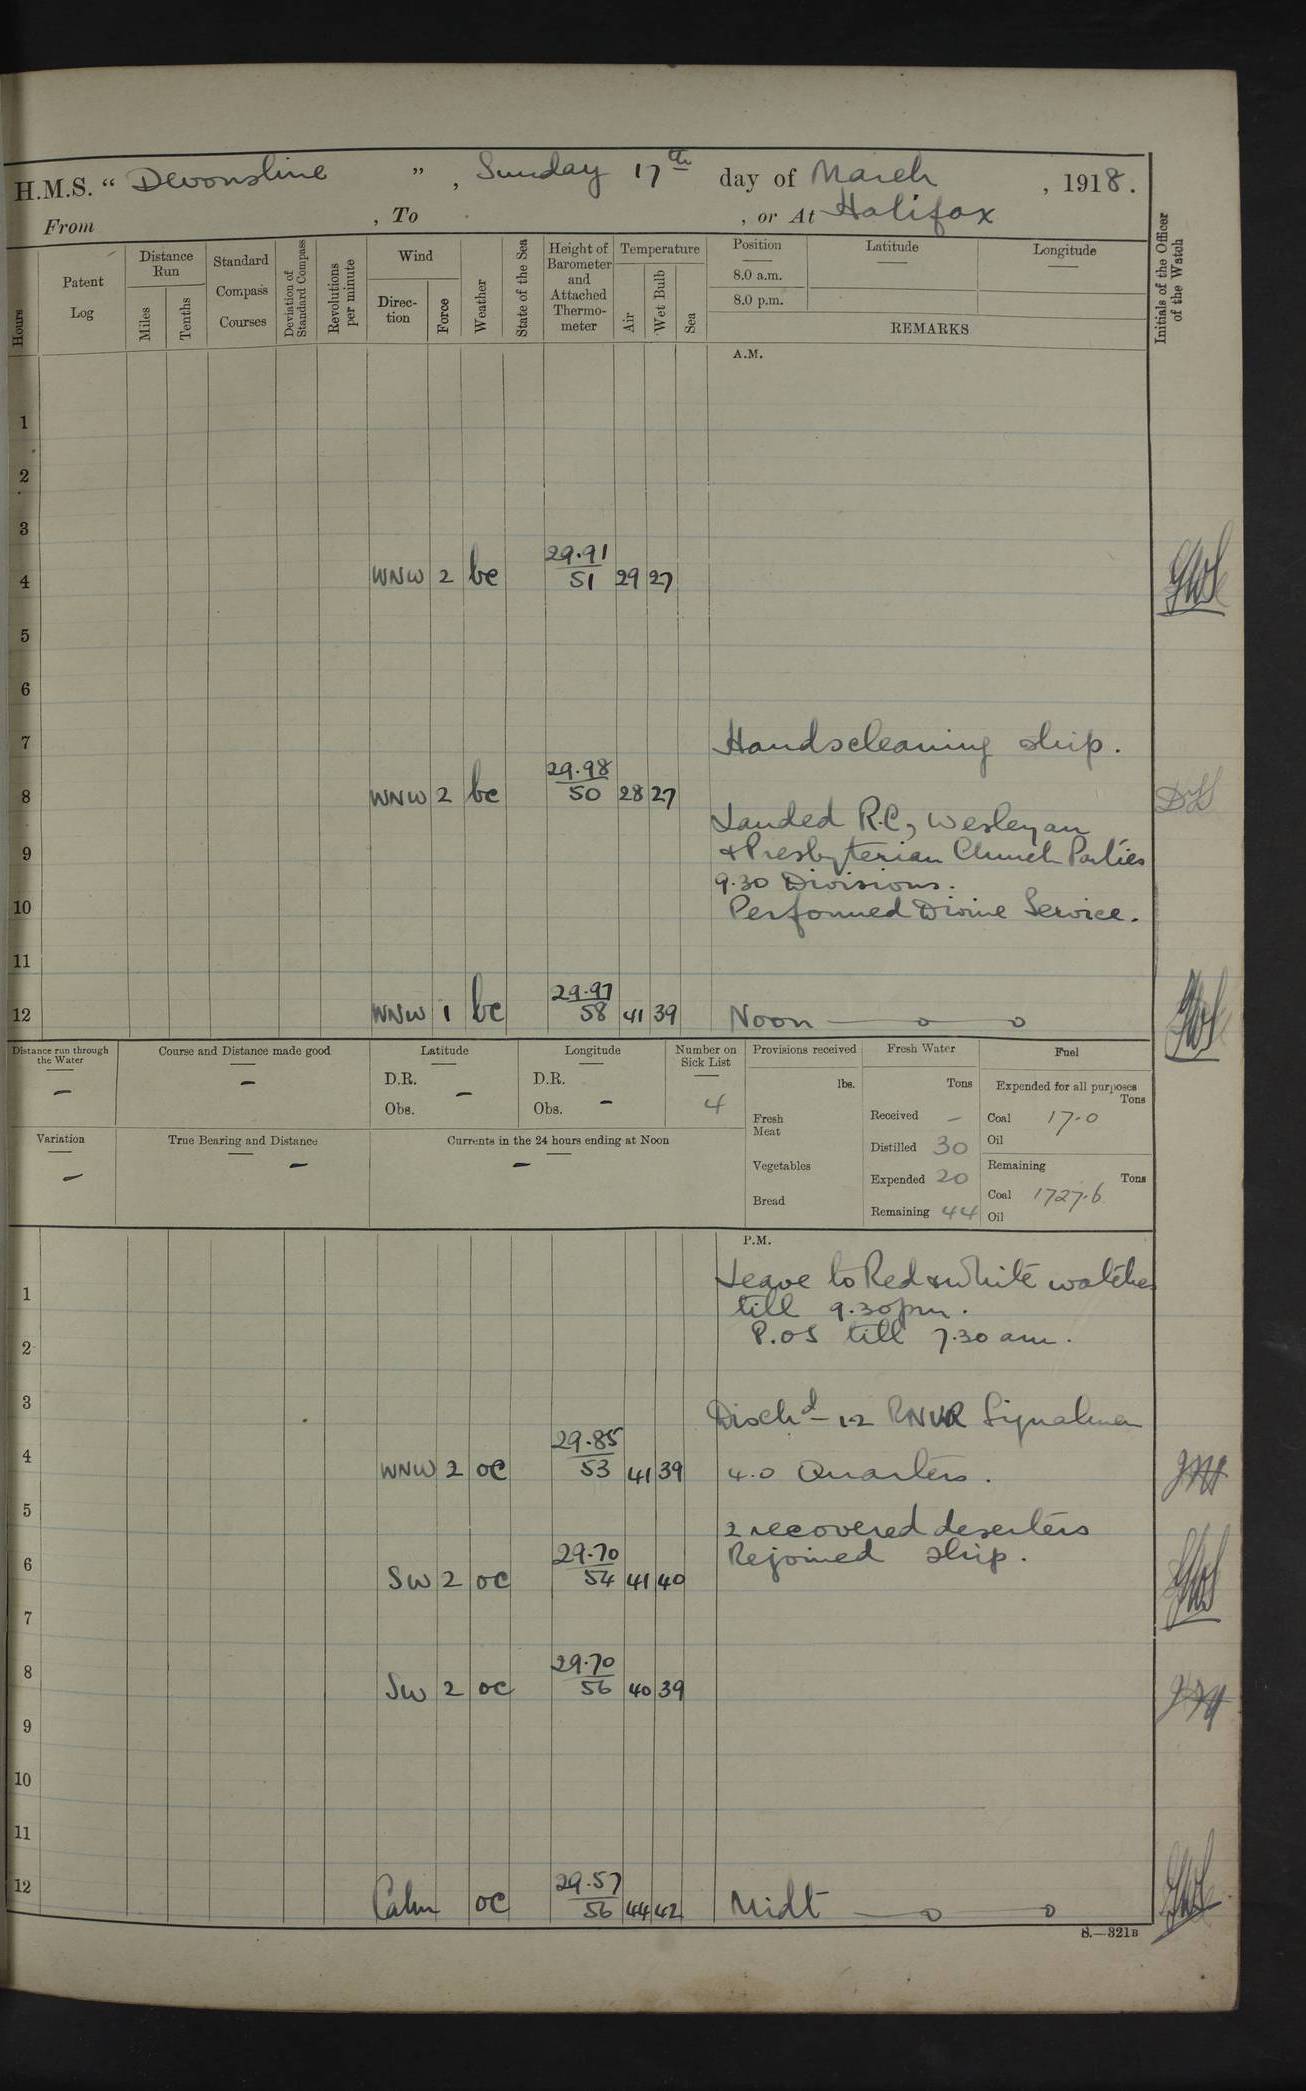 H.M.S. “ Devonshire ” , Sunday 17th day of March , 1918.
From , To , or At Halifax
Hours
Patent Log
Distance Run
Miles
Tenths
Standard Compass Courses
Deviation of Standard Compass
Revolutions per minute
Wind
Direc-tion
Force
Weather
State of the Sea
Height of Barometer and Attached Thermo-meter
Temperature
Air
Wet Bulb
Sea
Position
8.0 a.m.
8.0 p.m.
Latitude
Longitude
REMARKS
Initials of the Officer of the Watch
A.M.
1
2
3
29.91
4 WNW 2 bc 51 29 27
5
6
7 Hands cleaning ship.
29.98
8 WNW 2 bc 50 28 27
Landed R.C, Wesleyan
9 & Presbyterian Church Parties
9.30 Divisions.
10 Performed Divine Service.
11
29.97
12 WNW 1 bc 58 41 39 Noon
Distance run through the Water
–
Course and Distance made good
–
Latitude
D.R. –
Obs.
Longitude
D.R.
Obs. –
Number on Sick List
4
Provisions received
lbs.
Fresh Meat
Vegetables
Bread
Fresh Water
Tons
Received –
Distilled 30
Expended 20
Remaining 44
Fuel
Expended for all purposes
Tons
Coal 17.0
Oil
Remaining
Tons
Coal 1727.6
Oil
Variation
–
True Bearing and Distance
–
Currents in the 24 hours ending at Noon
–
P.M.
Leave to Red & White watches
1 till 9.30pm.
P.Os till 7.30 am.
2
3 Dischd 12 RNVR Signalmen
29.85
4 WNW 2 oc 53 41 39 4.0 Quarters.
5 2 recovered deserters
29.70 Rejoined ship.
6 SW 2 oc 54 41 40
7
29.70
8 SW 2 oc 56 40 39
9
10
11
29.57
12 Calm oc 56 44 42 Midt
S.—321B